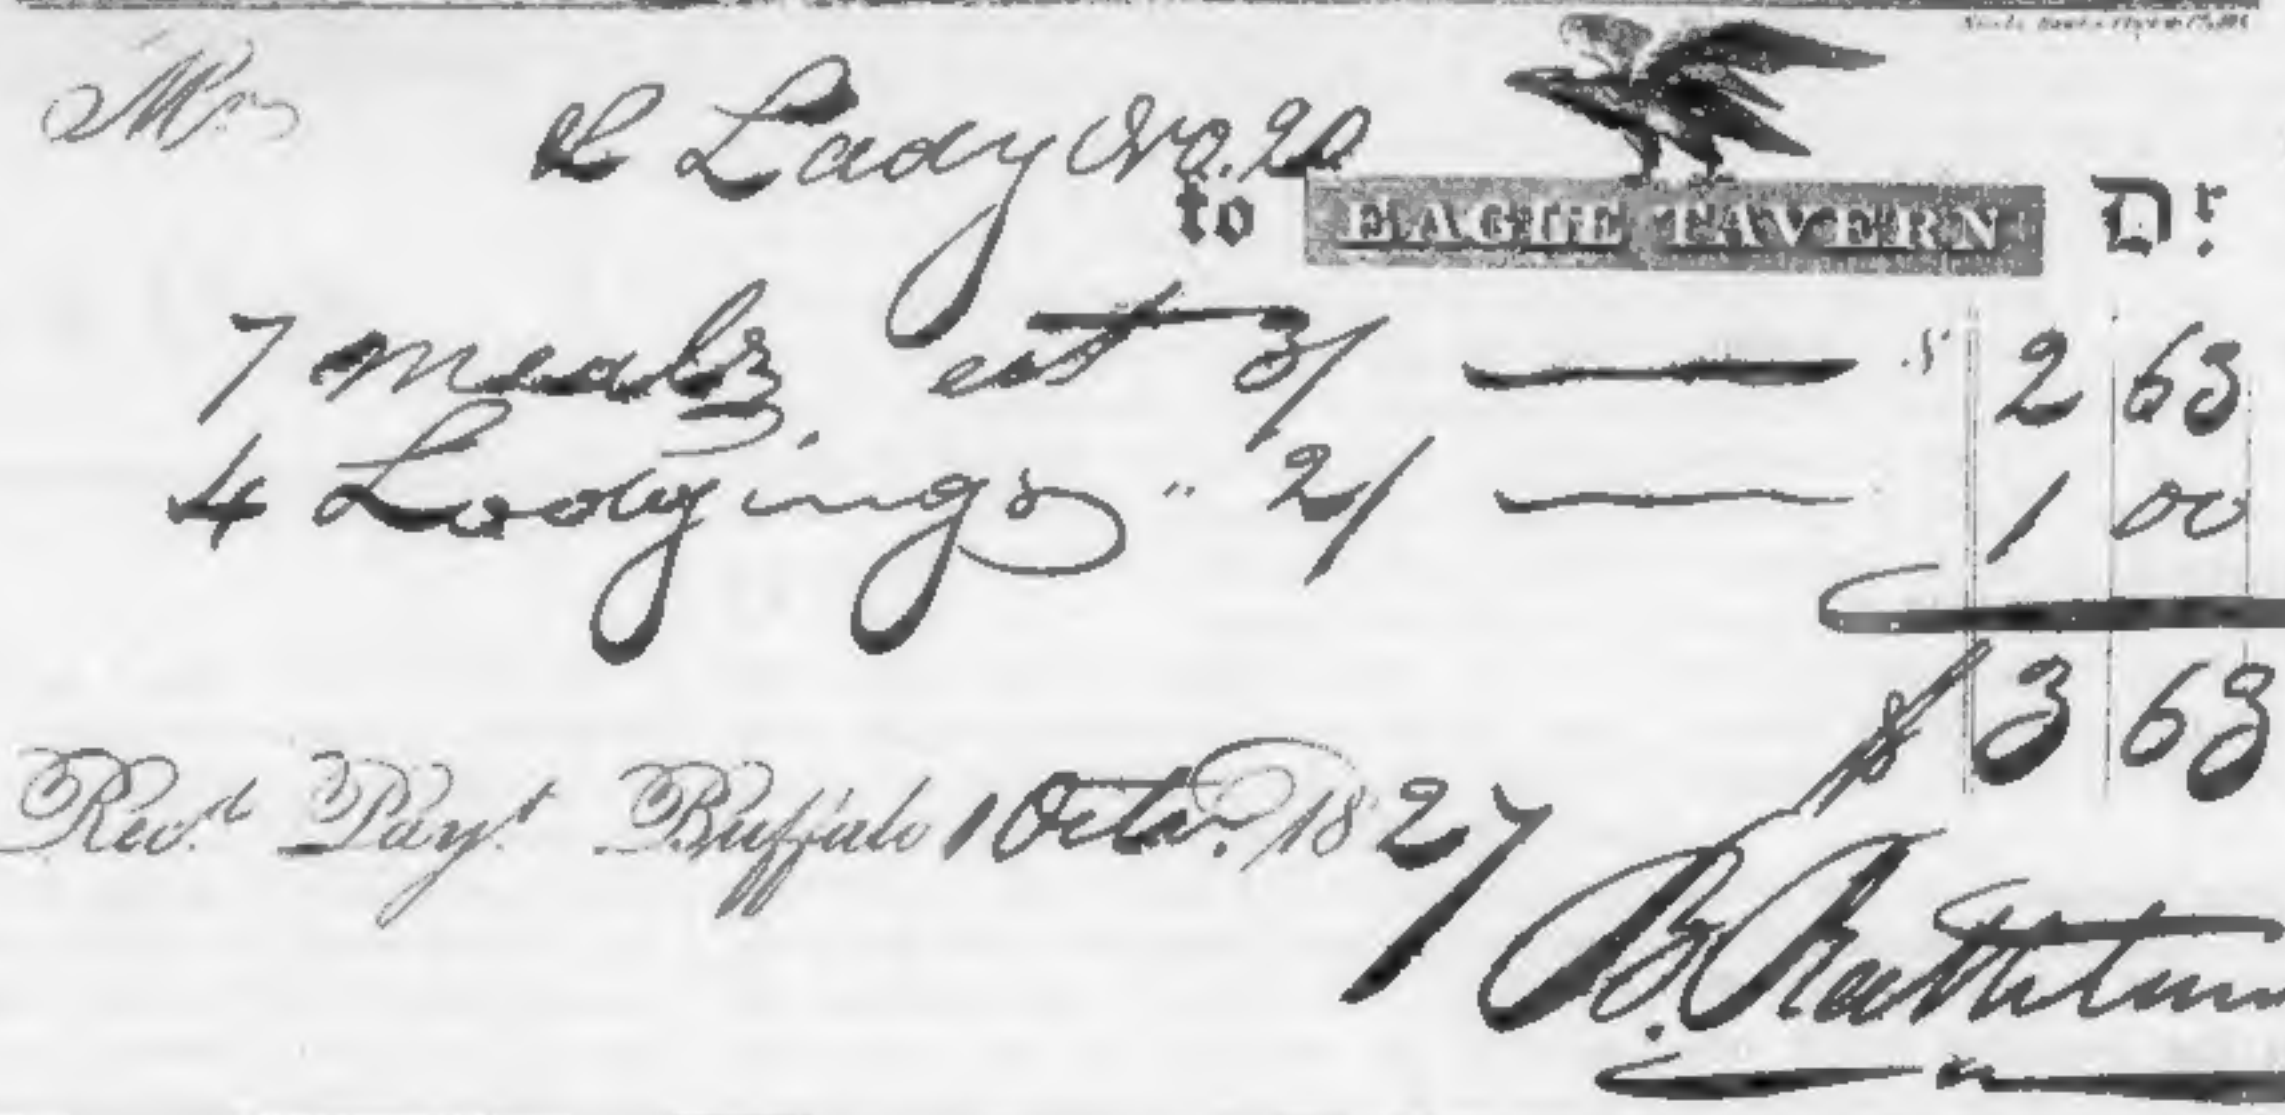 Mr
& Lady No. 20
to EAGLE TAVERN Dr.
7 meals, at 3/ $ 2 63
4 Lodgings " 2/ 1 00
$ 3 63
Recd. Payt. Buffalo 1 Octr. 1827
B. Rathbun